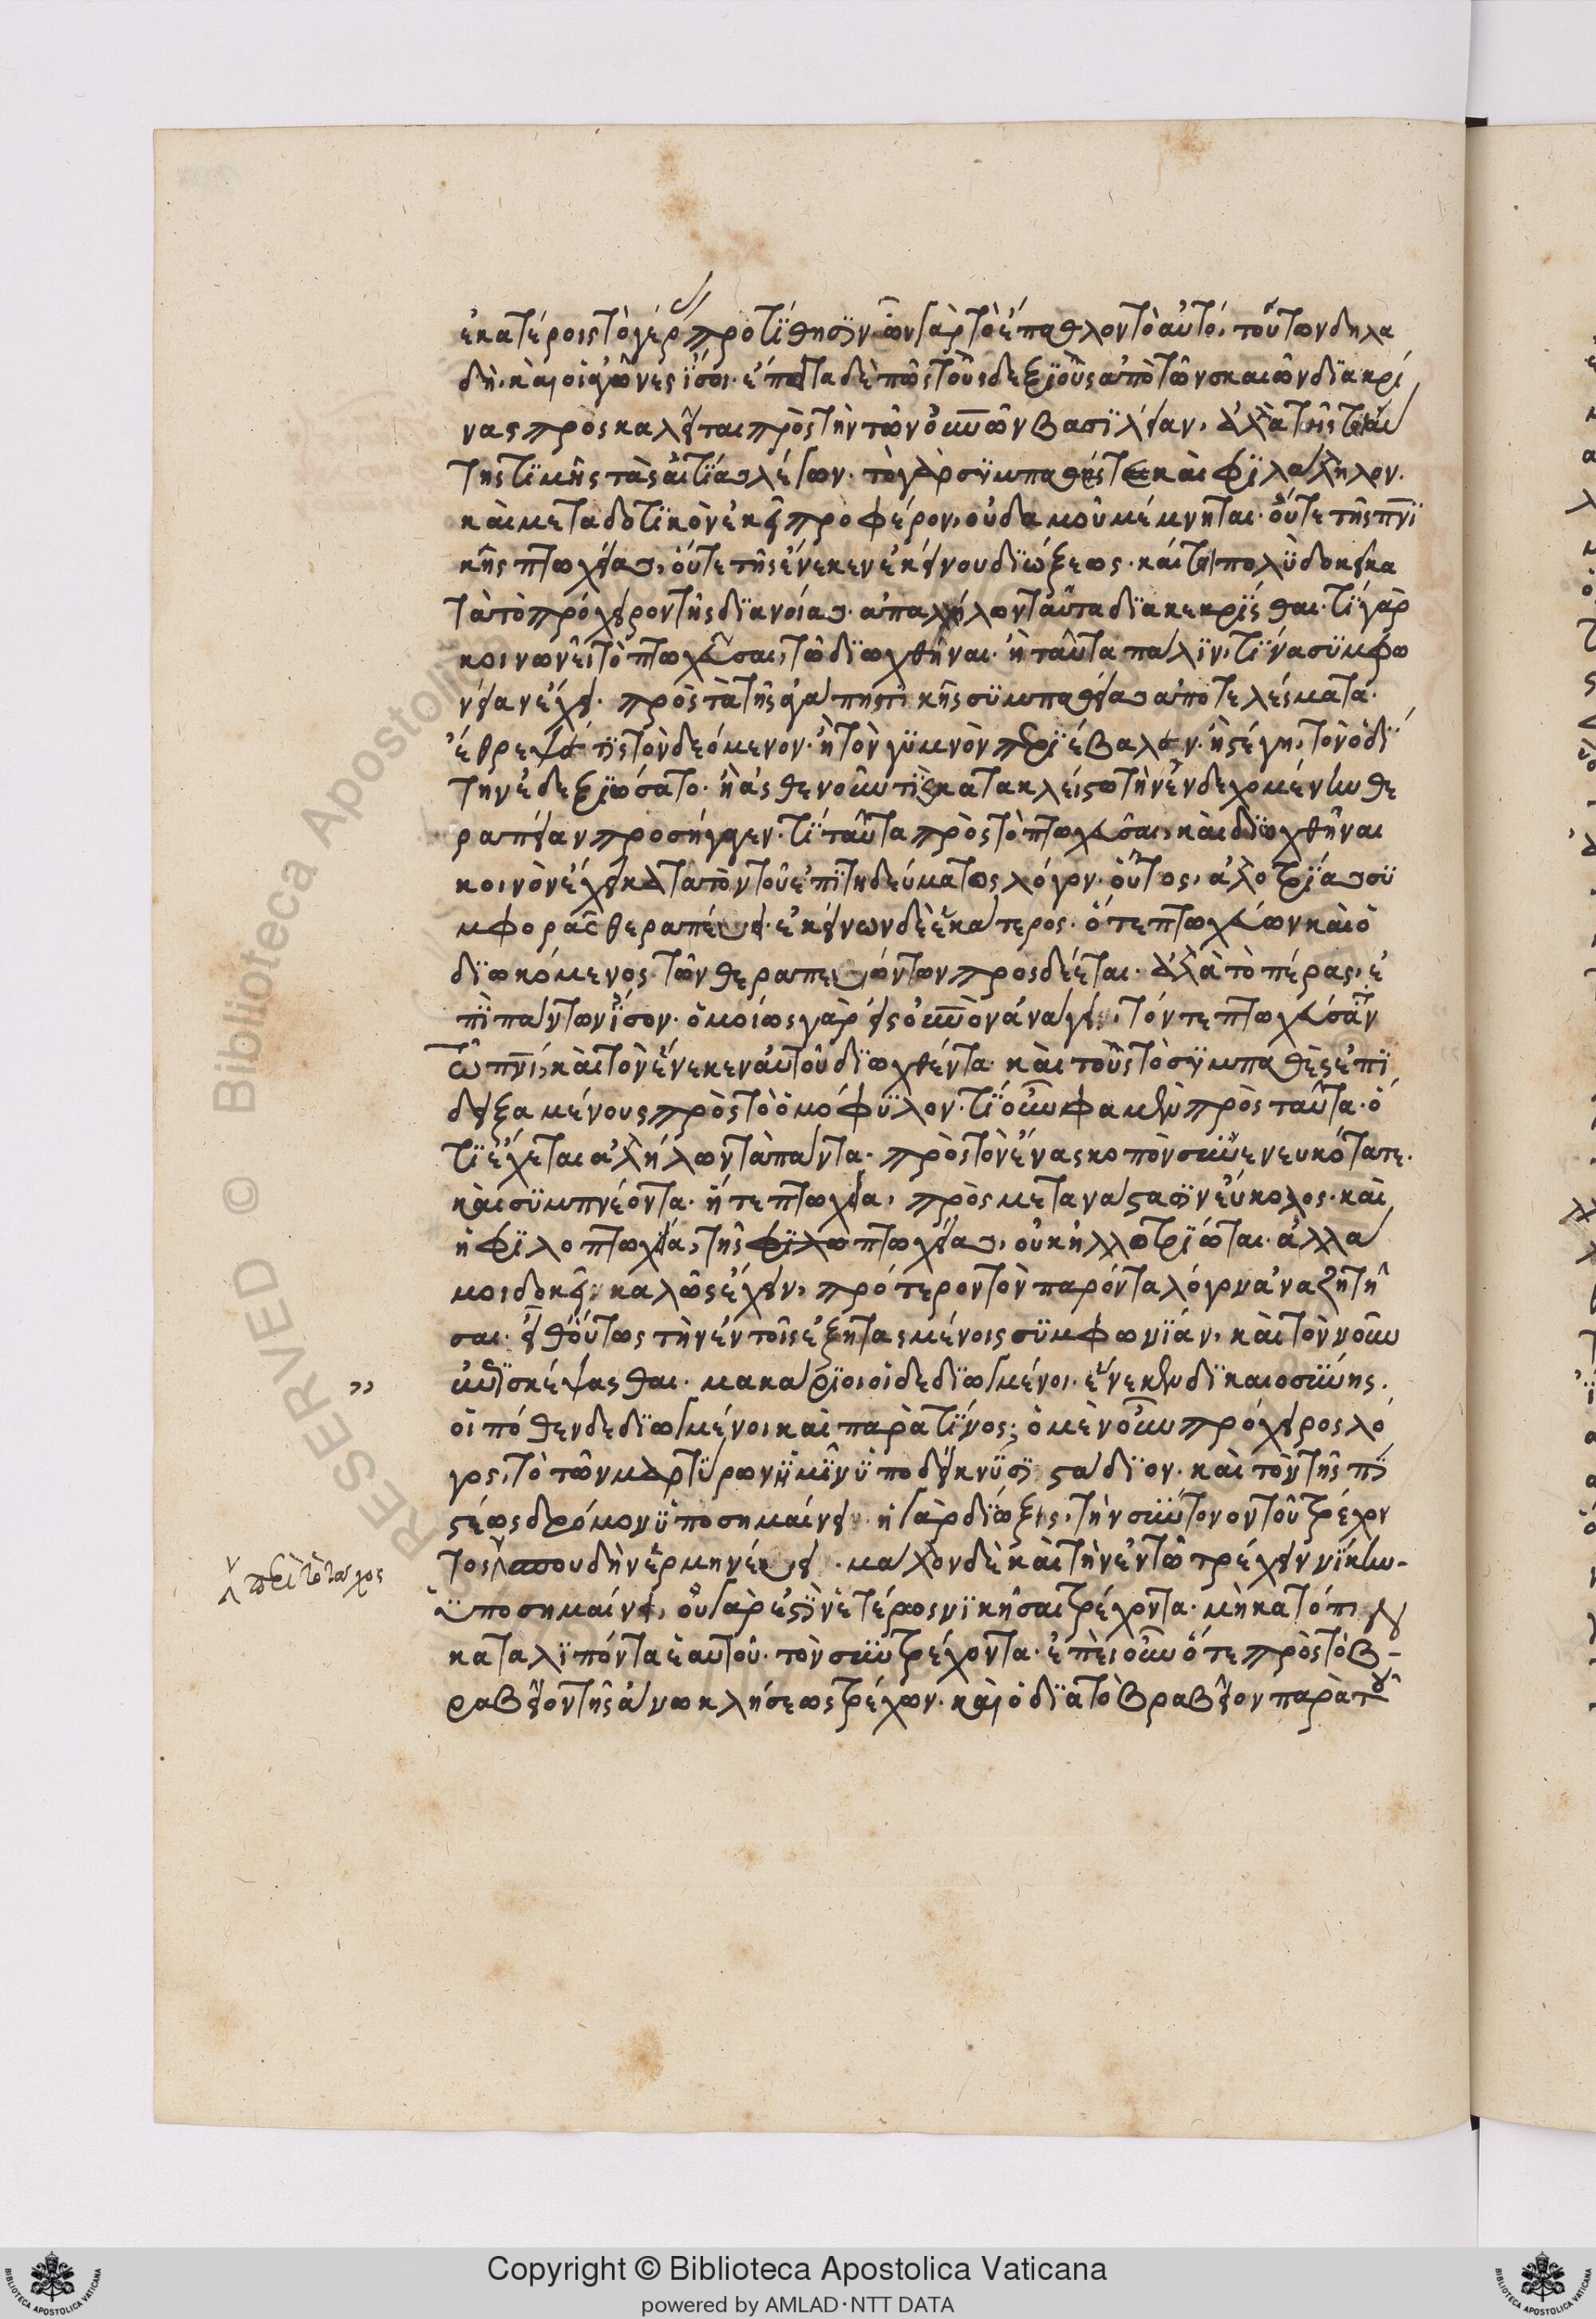 ἑκατέροις τὸ γέρας προτίθησιν ὧν γὰρ τὸ ἔπαθλον τὸ αὐτό, τούτων δηλα
δὴ, καὶ οἱ ἀγῶνες ἴσοι. ἔπειτα δὲ πῶς τοὺς δεξιοὺς ἀπὸ τῶν σκαιῶν διακρί
νας προσκαλεῖται πρὸς τὴν τῶν οὐνῶν βασιλείαν, ἄλλα τῆς
τῆς τιμῆς τὰς αἰτίας λέγων. τὸ γὰρ συμπαθὲς τε καὶ φιλάλληλον.
καὶ μεταδοτικὸν ἐκεῖ προφέρον, οὐδαμοῦ μέμνηται. οὔτε τῆς πνι
κῆς πτωχείας, οὔτε τῆς ἕνεκεν ἐκείνου διώξεως. καί τοι πολὺ δοκεῖ κα
τὰ τὸ πρόχειρον τῆς διανοίας. ἀπαλλήλων ταῦτα διακεκρίσθαι. τί γὰρ
κοινωνεῖ τὸ πτωχεῦσαι, τῶ διωχθῆναι. ἢ ταῦτα πάλιν, τίνα συμφω
νείαν ἔχει. πρὸς τὰ τῆς ἀγαπητικῆς συμπαθείας ἀποτελέσματα.
ἔθρεψέ τις τὸν δεόμενον. ἢ τὸν γυμνὸν περιέβαλεν. ἢ στέγη, τὸν ὁδί
την ἐδεξιώσατο. ἢ ἀσθενοῦντι καὶ κατακλείστω τὴν ἐνδεχομένην θε
ραπείαν προσήγαγεν. τί ταῦτα πρὸς τὸ πτωχεῦσαι, καὶ διωχθῆναι
κοινὸν ἔχει κατὰ τὸν τοῦ ἐπιτηδεύματος λόγον. οὗτος, ἀλλοτρίας συ
μφορὰς θεραπεύει. ἐκείνων δὲ ἑκάτερος. ὅ τε πτωχεύων καὶ ὁ
διωκόμενος τῶν θεραπευόντων προσδέεται. ἀλλὰ τὸ πέρας, ἐ
πὶ πάντων ἴσον. ὁμοίως γὰρ εἰς οὐνὸν ἀνάγει, τόν τε πτωχεύσαν
τῶ πνι, καὶ τὸν ἕνεκεν αὐτοῦ διωχθέντα. καὶ τοὺς τὸ συμπαθὲς ἐπι
δειξαμένους πρὸς τὸ ὁμόφυλον. τί οὖν φαμὲν πρὸς ταῦτα. ὅ
τι ἔχεται ἀλλήλων τὰ πάντα. πρὸς τὸν ἕνα σκοπὸν συννενευκότα τε.
καὶ συμπνέοντα. ἥ τε πτωχεία, πρὸς μετανάστασιν εὔκολος. καὶ
ἡ φιλοπτωχεία, τῆς φιλω πτωχείας, οὐκ ἠλλοτρίωται. ἀλλά
μοι δοκεῖ καλῶς ἔχειν, πρότερον τὸν παρόντα λόγον ἀναζητῆ
σαι. εἶθ οὕτως τὴν ἐν τοῖς ἐξητασμένοις συμφωνίαν, καὶ τὸν νοῦν
συνδισκέψασθαι. μακάριοι οἱ δεδιωγμένοι. ἕνεκεν δικαιοσύνης.
οἱ πόθεν δεδιωγμένοι καὶ παρὰ τίνος; ὁ μὲν οὖν πρόχειρος λό
γος, τὸ τῶν μαρτύρων ἡμῖν ὑποδείκνυσι στάδιον. καὶ τὸν τῆς πί
στεως δρόμον ὑποσημαίνει. ἡ γὰρ δίωξις, τὴν σύντονον τοῦ τρέχον
τος σπουδὴν ἑρμηνεύει. μᾶλλον δὲ καὶ τὴν ἐν τῶ τρέχειν νίκην
ὑποσημαίνει, οὐ γὰρ ἐστιν ἑτέρως νικῆσαι τρέχοντα. μὴ κατόπιν
καταλιπόντα ἑαυτοῦ. τὸν συντρέχοντα. ἐπεὶ οὖν ὅ τε πρὸς τὸ β
ραβεῖον τῆς ἄνω κλήσεως τρέχων. καὶ ὁ διὰ τὸ βραβεῖον παρὰ τοῦ
Copyright © Biblioteca Apostolica Vaticana
powered by AMLAD·NTT DATA
RESERVED © Biblioteca Apostolica